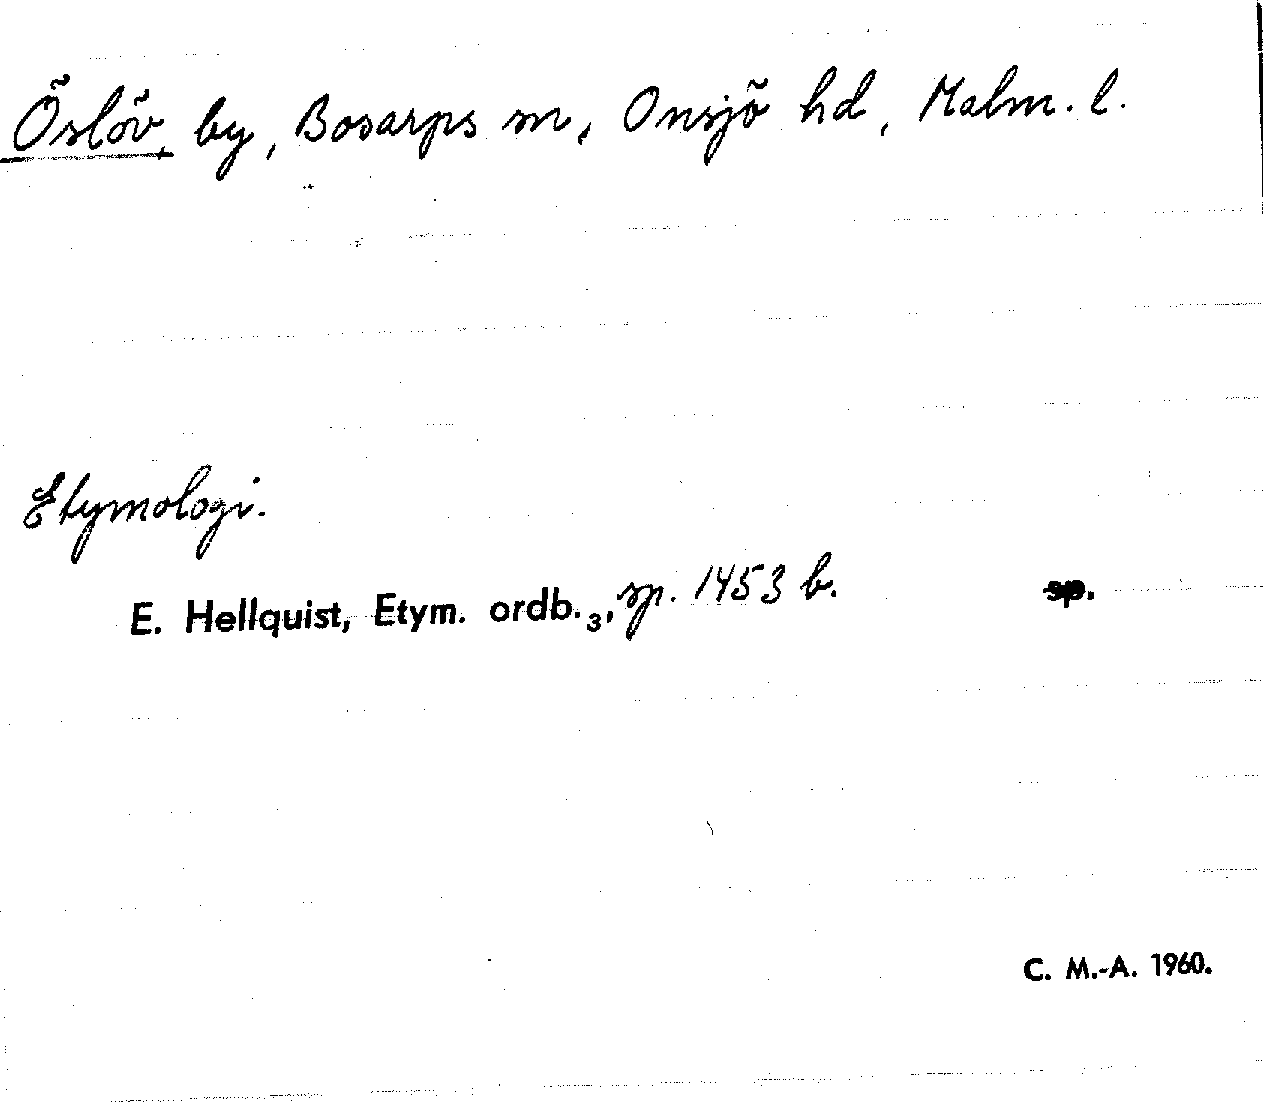 Öslöv, by, Bosarps sn, Onsjö hd, Malm. l.
Etymologi.
E. Hellquist, Etym. ordb.₃, sp. 1453 b. sp.
C. M.-A. 1960.